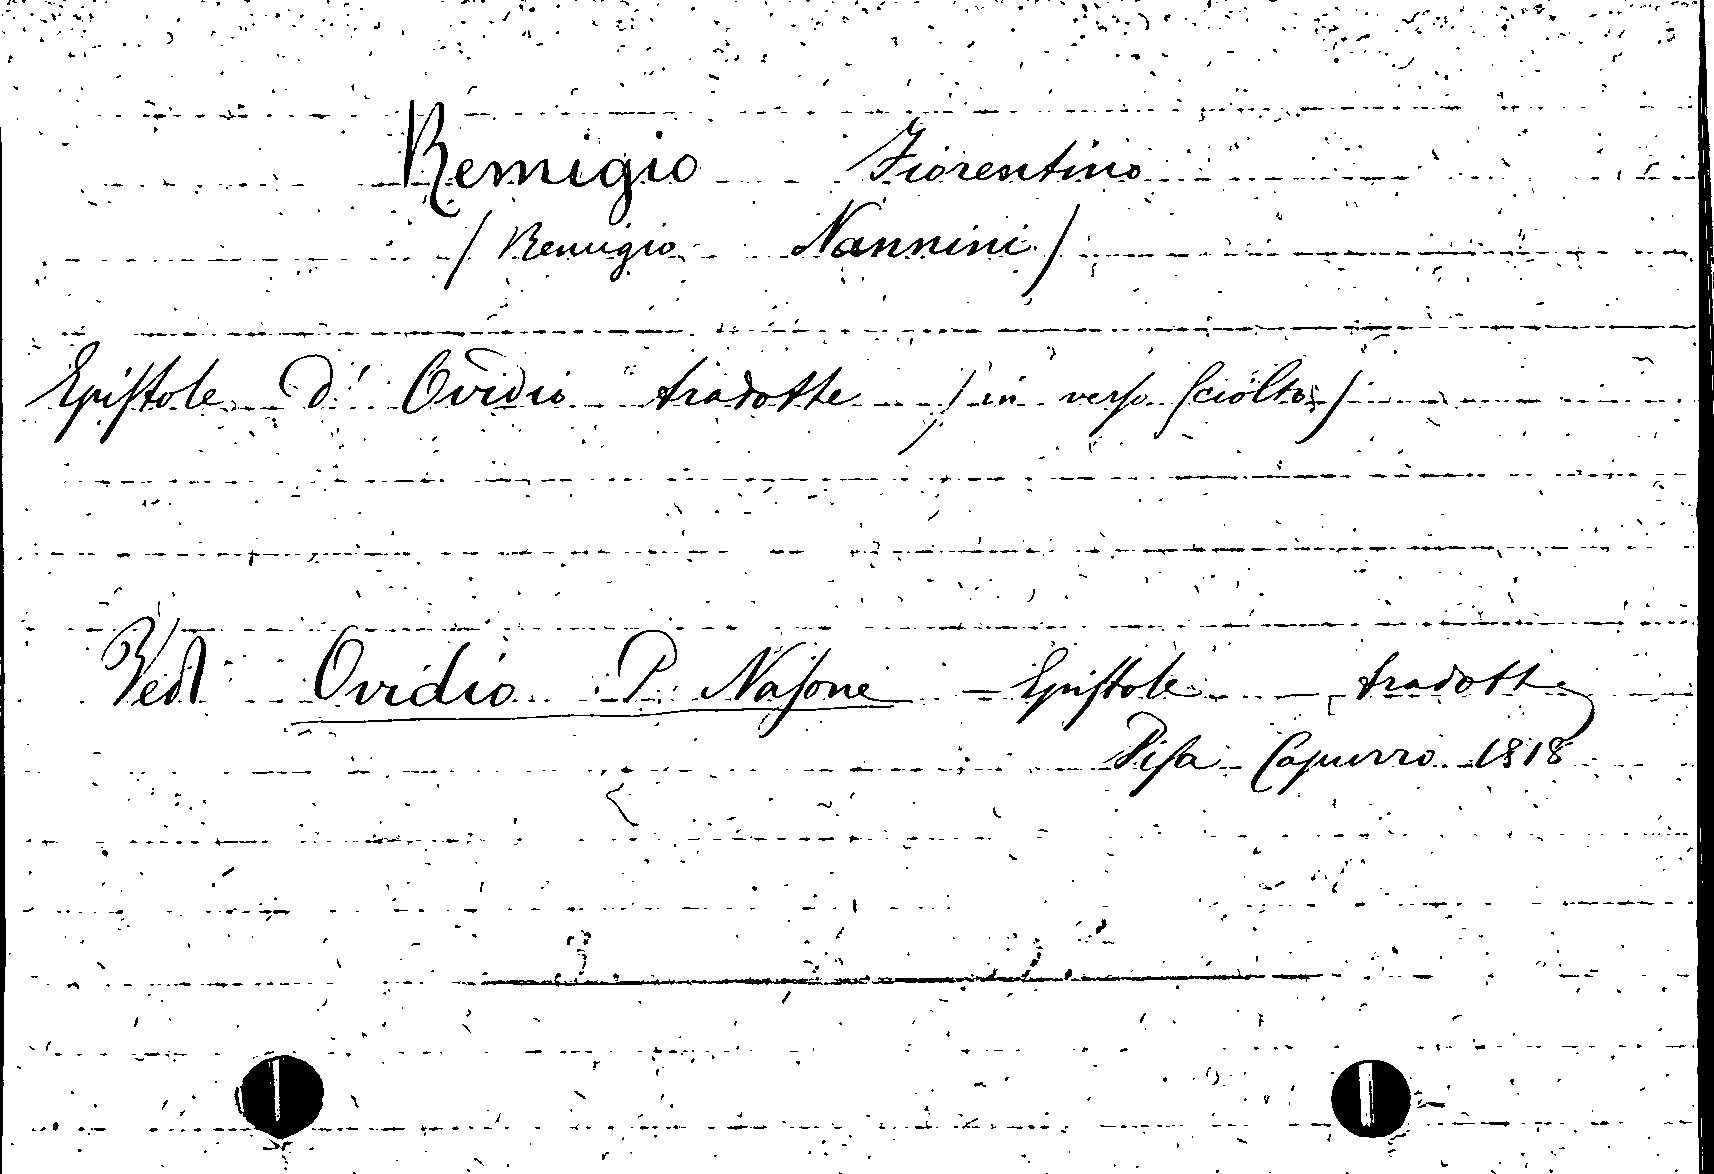 Remigio Fiorentino
/ Remigio Nannini /
Epistole d' Ovidio tradotte / in verso sciolto /
Vedi Ovidio P. Nasone - Epistole - tradotte
Pisa Capurro 1818